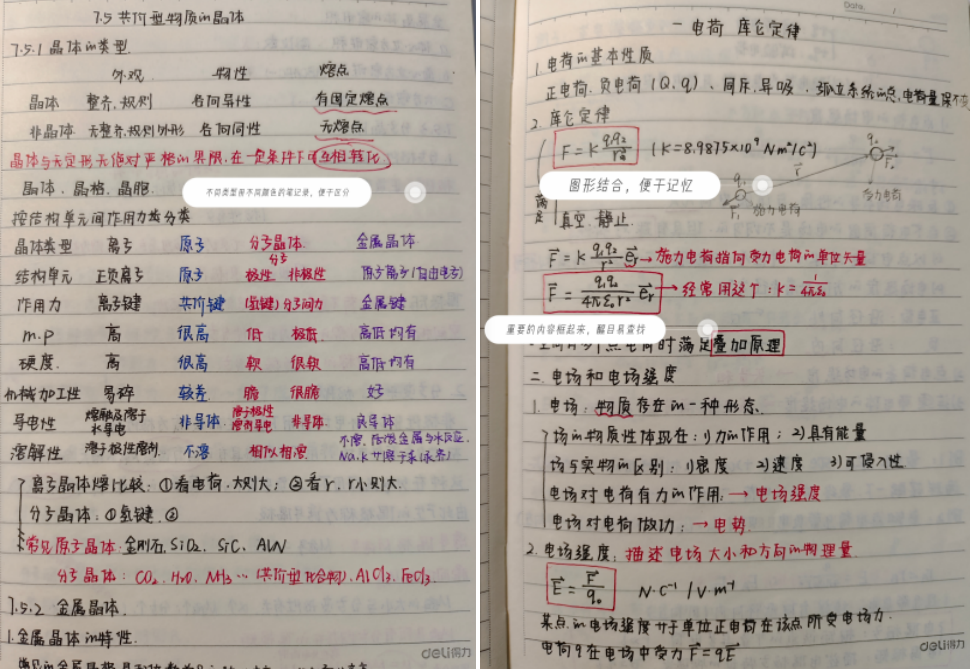 7.5 共价型物质的晶体
7.5.1 晶体的类型.
外观 物性 熔点
晶体 整齐.规则 各向异性 有固定熔点
非晶体 无整齐.规则外形 各向同性 无熔点
晶体与无定形无绝对严格的界限,在一定条件下可互相转化.
晶体、晶格、晶胞
不同类型有不同颜色的笔记录,便于区分
按结构单元间作用力类分类
晶体类型 离子 原子 分子晶体 金属晶体
分子
结构单元 正负离子 原子 极性 非极性 原子离子(自由电子)
作用力 离子键 共价键 (氢键)分子间力 金属键
m.p 高 很高 低 极低 高低均有
硬度. 高 很高 软 很软 高低均有
机械加工性 易碎 较差 脆 很脆 好
导电性 熔融及溶于水导电 非导体 溶于极性溶剂导电 非导体 良导体
溶解性 溶于极性溶剂. 不溶 相似相溶 不溶,
离子晶体熔点比较:①看电荷.大则大; ②看r.r小则大.
分子晶体:①氢键.②
常见原子晶体:金刚石、SiO₂、SiC、AlN
分子晶体: CO₂、H₂O、NH₃…(共价型化合物).AlCl₃.FeCl₃.
7.5.2 金属晶体.
1.金属晶体的特性.
deli得力
Date.
一 电荷 库仑定律
1.电荷的基本性质
正电荷.负电荷(Q、q)、同斥.异吸、孤立系统的总电荷量保不变
2.库仑定律
F=k q₁q₂/r² (k=8.9875×10⁹ N·m²/C²)
图形结合,便于记忆
q₀ F₁ 施力电荷 r q₀ F₂ 受力电荷
满足
真空.静止.
F⃗=k q₁q₂/r² e⃗r→施力电荷指向受力电荷的单位矢量
F⃗=q₁q₀/4πε₀r² e⃗r →经常用这个:k=1/4πε₀
重要的内容框起来,醒目易查找
点电荷时满足叠加原理
二.电场和电场强度
1.电场:物质存在的一种形态.
场的物质性体现在:1)力的作用;2)具有能量
场与实物的区别:1)密度 2)速度 3)可侵入性
电场对电荷有力的作用.→电场强度
电场对电荷做功:→电势
2.电场强度:描述电场大小和方向的物理量
E⃗=F⃗/q₀ N·C⁻¹/V·m⁻¹
某点的电场强度等于单位正电荷在该点所受电场力.
电荷q在电场中受力F⃗=qE⃗
deli得力